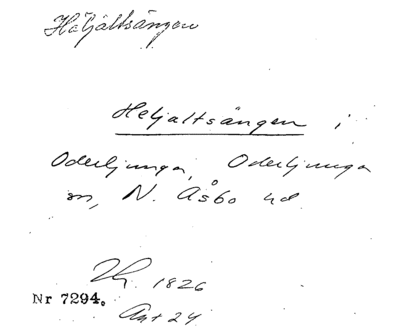 Häljaltsängen
Heljaltsängen i
Oderljunga, Oderljunga
sn, N. Åsbo hd
1826
Nr 7294.
Akt 24